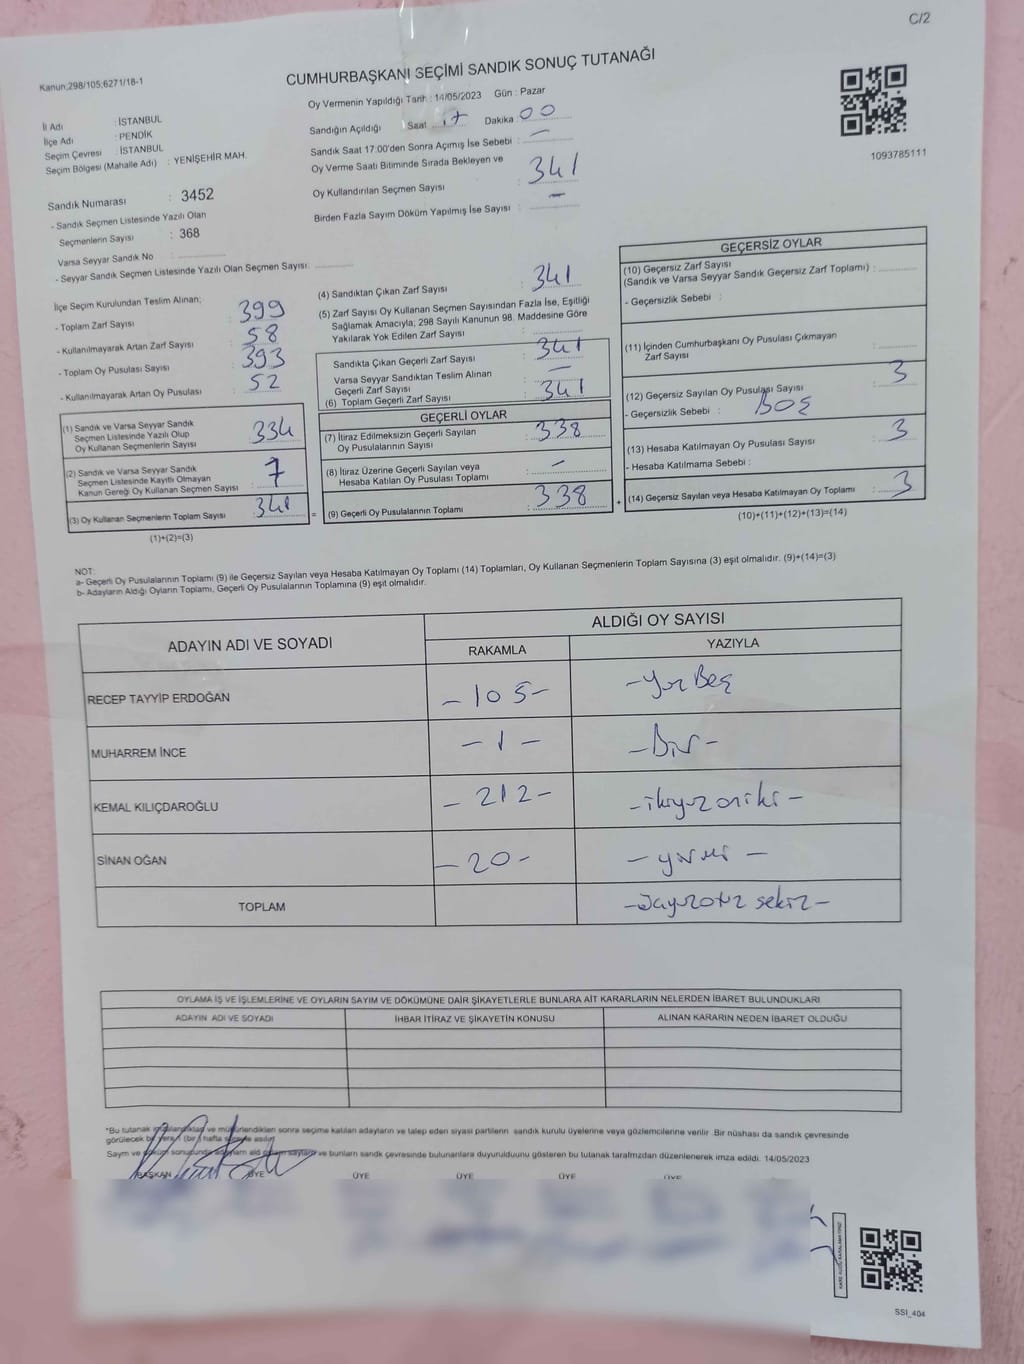 C/2
Kanun;298/105;6271/18-1
CUMHURBAŞKANI SEÇİMİ SANDIK SONUÇ TUTANAĞI
İl Adı : İSTANBUL
İlçe Adı : PENDİK
Seçim Çevresi : İSTANBUL
Seçim Bölgesi (Mahalle Adı) : YENİŞEHİR MAH.
Sandık Numarası : 3452
- Sandık Seçmen Listesinde Yazılı Olan
Seçmenlerin Sayısı : 368
Varsa Seyyar Sandık No :
- Seyyar Sandık Seçmen Listesinde Yazılı Olan Seçmen Sayısı:
Oy Vermenin Yapıldığı Tarih : 14/05/2023 Gün : Pazar
Sandığın Açıldığı : Saat 17 Dakika 00
Sandık Saat 17:00'den Sonra Açımış İse Sebebi : —
Oy Verme Saati Bitiminde Sırada Bekleyen ve
Oy Kullandırılan Seçmen Sayısı : 341
Birden Fazla Sayım Döküm Yapılmış İse Sayısı : —
1093785111
İlçe Seçim Kurulundan Teslim Alınan;
- Toplam Zarf Sayısı : 399
- Kullanılmayarak Artan Zarf Sayısı : 58
- Toplam Oy Pusulası Sayısı : 393
- Kullanılmayarak Artan Oy Pusulası : 52
(1) Sandık ve Varsa Seyyar Sandık
Seçmen Listesinde Yazılı Olup
Oy Kullanan Seçmenlerin Sayısı : 334
(2) Sandık ve Varsa Seyyar Sandık
Seçmen Listesinde Kayıtlı Olmayan
Kanun Gereği Oy Kullanan Seçmen Sayısı : 7
(3) Oy Kullanan Seçmenlerin Toplam Sayısı : 341
(1)+(2)=(3)
(4) Sandıktan Çıkan Zarf Sayısı : 341
(5) Zarf Sayısı Oy Kullanan Seçmen Sayısından Fazla İse, Eşitliği
Sağlamak Amacıyla; 298 Sayılı Kanunun 98. Maddesine Göre
Yakılarak Yok Edilen Zarf Sayısı :
Sandıkta Çıkan Geçerli Zarf Sayısı : 341
Varsa Seyyar Sandıktan Teslim Alınan
Geçerli Zarf Sayısı : —
(6) Toplam Geçerli Zarf Sayısı : 341
GEÇERLİ OYLAR
(7) İtiraz Edilmeksizin Geçerli Sayılan
Oy Pusulalarının Sayısı : 338
(8) İtiraz Üzerine Geçerli Sayılan veya
Hesaba Katılan Oy Pusulası Toplamı : —
(9) Geçerli Oy Pusulalarının Toplamı : 338
GEÇERSİZ OYLAR
(10) Geçersiz Zarf Sayısı
(Sandık ve Varsa Seyyar Sandık Geçersiz Zarf Toplamı) :
- Geçersizlik Sebebi :
(11) İçinden Cumhurbaşkanı Oy Pusulası Çıkmayan
Zarf Sayısı :
(12) Geçersiz Sayılan Oy Pusulası Sayısı : 3
- Geçersizlik Sebebi : BOŞ
(13) Hesaba Katılmayan Oy Pusulası Sayısı : 3
- Hesaba Katılmama Sebebi :
(14) Geçersiz Sayılan veya Hesaba Katılmayan Oy Toplamı : 3
(10)+(11)+(12)+(13)=(14)
NOT:
a- Geçerli Oy Pusulalarının Toplamı (9) ile Geçersiz Sayılan veya Hesaba Katılmayan Oy Toplamı (14) Toplamları, Oy Kullanan Seçmenlerin Toplam Sayısına (3) eşit olmalıdır. (9)+(14)=(3)
b- Adayların Aldığı Oyların Toplamı, Geçerli Oy Pusulalarının Toplamına (9) eşit olmalıdır.
ADAYIN ADI VE SOYADI
ALDIĞI OY SAYISI
RAKAMLA YAZIYLA
RECEP TAYYİP ERDOĞAN -105- -YüzBeş
MUHARREM İNCE -1- -Bir-
KEMAL KILIÇDAROĞLU -212- -ikiyüzoniki-
SİNAN OĞAN -20- -yirmi-
TOPLAM -üçyüzotuz sekiz-
OYLAMA İŞ VE İŞLEMLERİNE VE OYLARIN SAYIM VE DÖKÜMÜNE DAİR ŞİKAYETLERLE BUNLARA AİT KARARLARIN NELERDEN İBARET BULUNDUKLARI
ADAYIN ADI VE SOYADI İHBAR İTİRAZ VE ŞİKAYETİN KONUSU ALINAN KARARIN NEDEN İBARET OLDUĞU
*Bu tutanak ve mühürlendikten sonra seçime katılan adayların ve talep eden siyasi partilerin sandık kurulu üyelerine veya gözlemcilerine verilir .Bir nüshası da sandık çevresinde
görülecek bir yere (bir) hafta süreyle asılır.
Sayım ve ve bunların sandık çevresinde bulunanlara duyurulduunu gösteren bu tutanak tarafımızdan düzenlenerek imza edildi. 14/05/2023
BAŞKAN ÜYE ÜYE ÜYE ÜYE ÜYE
SSI_404